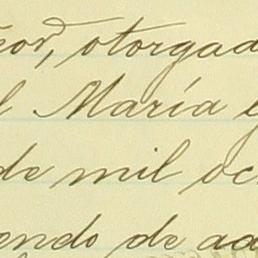 eor, otorgad
l María
de mil oc
endo de ad